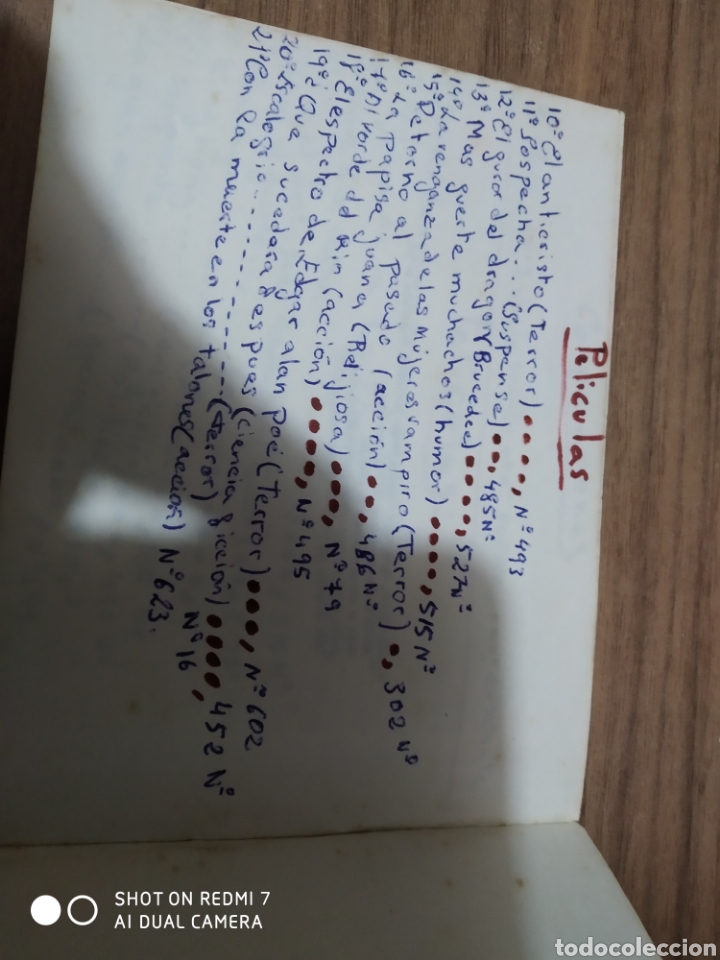 Peliculas
10º El anticristo (Terror) ...., Nº 493
11º Sospecha... (Suspense) .., 485 Nº
12º El furor del dragon (Brucelee) ...., 527 Nº
13º Mas fuerte muchachos (humor) ...., 515 Nº
14º La venganza de las mujeres vampiro (Terror) ., 302 Nº
15º Retorno al pasado (acción) .., 486 Nº
16º La papisa juana (Relijiosa) ..., Nº 79
17º Al vorde del Rin (acción) ...., Nº 495
18º El espectro de Edgar alan poé (Terror) ..., Nº 602
19º ¿Que sucedara despues (ciencia ficción) ...., 452 Nº
20º Escalofrio ............ (terror) Nº 16,
21º Con la muerte en los talones (acción) Nº 623.
SHOT ON REDMI 7
AI DUAL CAMERA
todocoleccion